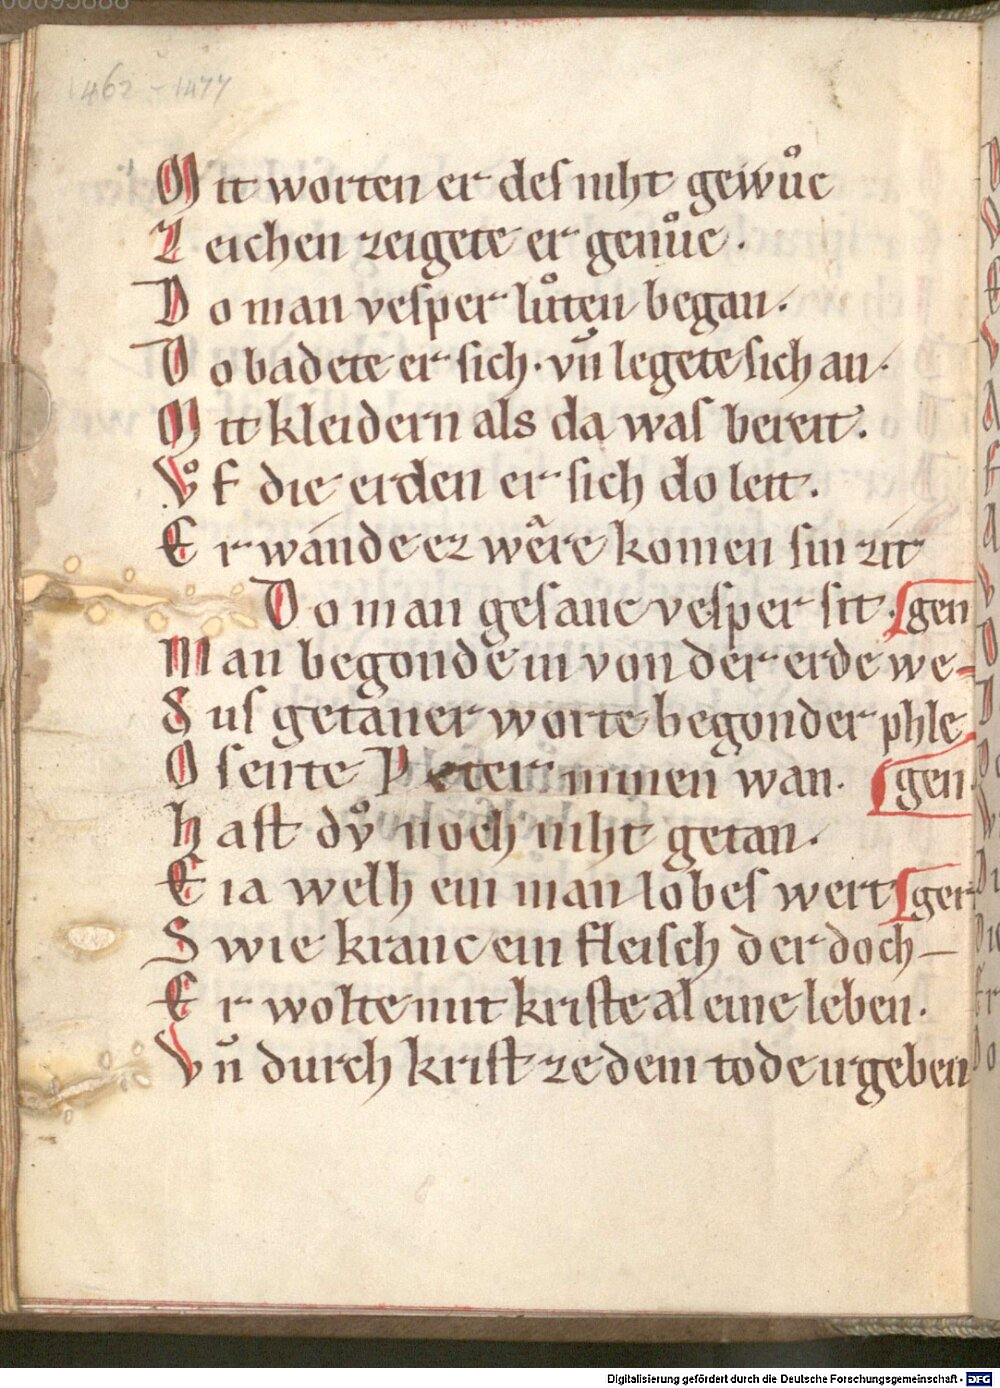 00095888
1462 - 1477
Mit worten er deſ niht gewuͦc
Zeichen zeigete er genuͦc .
Do man veſper luͦten began .
Do badete er ſich . vn̄ legete ſich an .
Mit kleidern als da waſ bereit .
Vͦf die erden er ſich do leit .
Er wande ez wêre komen ſin zit
Do man geſanc veſper ſit . gen
Man begonde in von der erde we-
Sus getaner worte begonder phle
O ſente Peter minen wan . gen
Haſt dvͦ noch niht getan .
Eia welh ein man lobeſ wert ger
Swie kranc ein fleiſch der doch —
Er wolte mit kriſte aleine leben .
Vn̄ durch kriſt ze dem tode irgeben
Digitalisierung gefördert durch die Deutsche Forschungsgemeinschaft - DFG